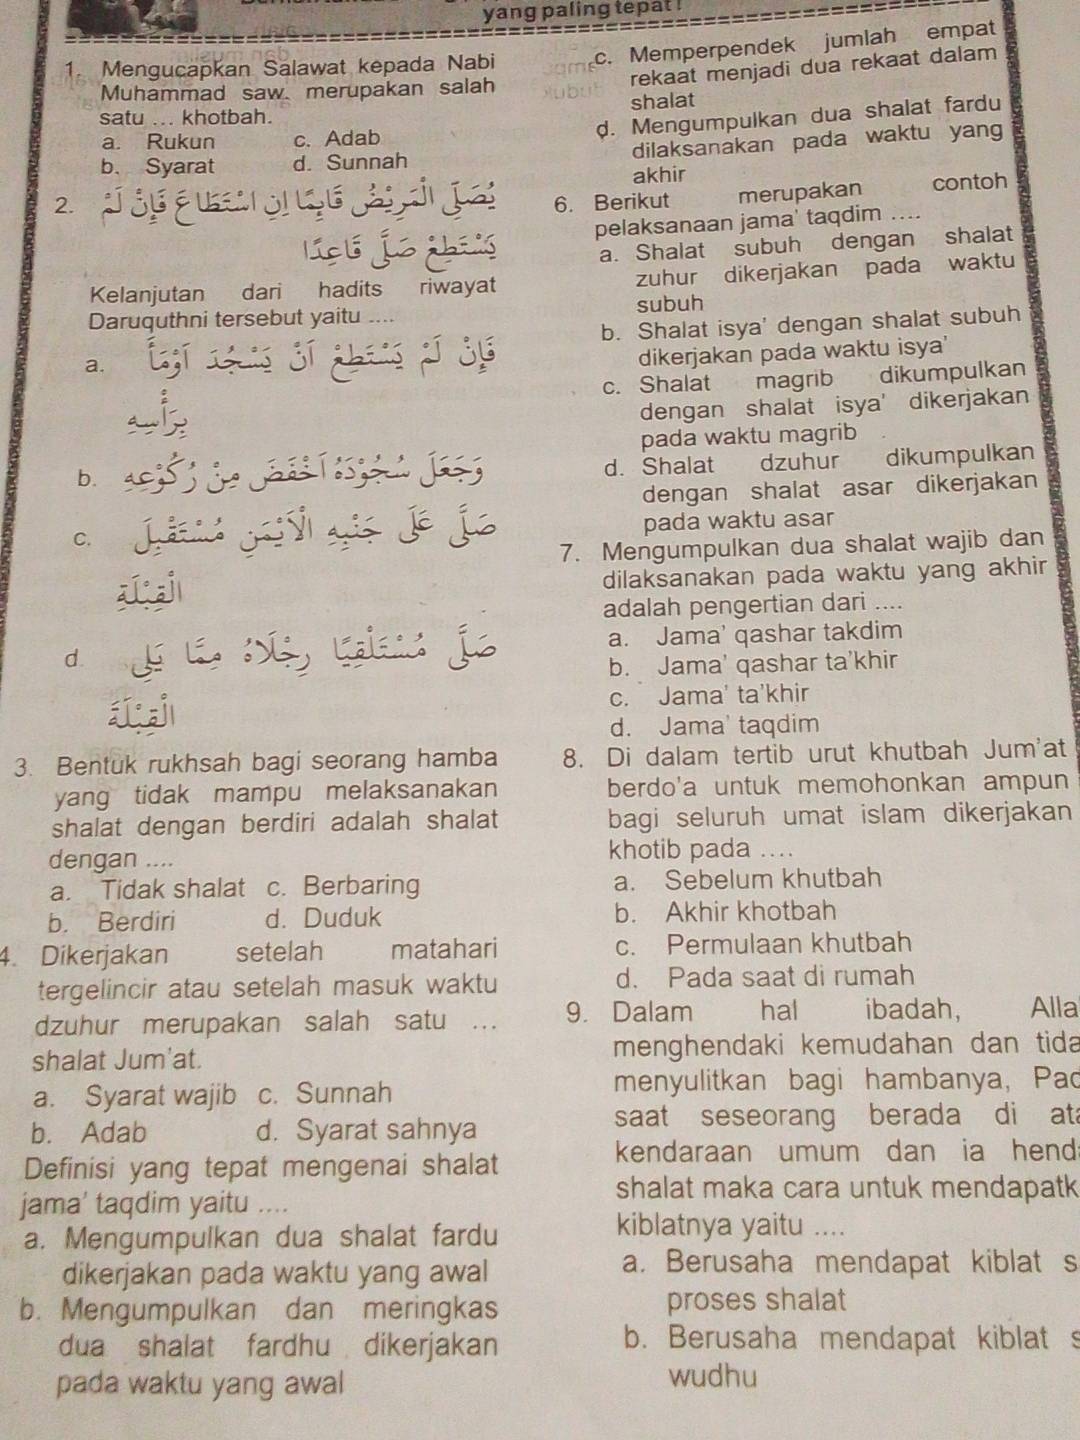 yang paling tepat !
1. Mengucapkan Salawat kepada Nabi
Muhammad saw. merupakan salah
satu ... khotbah.
a. Rukun c. Adab
b. Syarat d. Sunnah
2. يُصَلِّي الْمَرِيْضُ قَائِمًا إِنِ اسْتَطَاعَ فَإِنْ لَمْ
يَسْتَطِعْ صَلَّى قَاعِدًا
Kelanjutan dari hadits riwayat
Daruquthni tersebut yaitu ....
a. فَإِنْ لَمْ يَسْتَطِعْ أَنْ يَسْجُدَ أَوْمَأَ
بِرَأْسِهِ
b. وَجَعَلَ سُجُوْدَهُ أَخْفَضَ مِنْ رُكُوْعِهِ
c. صَلَّى عَلَى جَنْبِهِ الْأَيْمَنِ مُسْتَقْبِلَ
الْقِبْلَةِ
d. صَلَّى مُسْتَلْقِيًا رِجْلَاهُ مِمَّا يَلِي
الْقِبْلَةَ
3. Bentuk rukhsah bagi seorang hamba
yang tidak mampu melaksanakan
shalat dengan berdiri adalah shalat
dengan ....
a. Tidak shalat c. Berbaring
b. Berdiri d. Duduk
4. Dikerjakan setelah matahari
tergelincir atau setelah masuk waktu
dzuhur merupakan salah satu ...
shalat Jum'at.
a. Syarat wajib c. Sunnah
b. Adab d. Syarat sahnya
Definisi yang tepat mengenai shalat
jama' taqdim yaitu ....
a. Mengumpulkan dua shalat fardu
dikerjakan pada waktu yang awal
b. Mengumpulkan dan meringkas
dua shalat fardhu dikerjakan
pada waktu yang awal
c. Memperpendek jumlah empat
rekaat menjadi dua rekaat dalam
shalat
d. Mengumpulkan dua shalat fardu
dilaksanakan pada waktu yang
akhir
6. Berikut merupakan contoh
pelaksanaan jama' taqdim ....
a. Shalat subuh dengan shalat
zuhur dikerjakan pada waktu
subuh
b. Shalat isya' dengan shalat subuh
dikerjakan pada waktu isya'
c. Shalat magrib dikumpulkan
dengan shalat isya' dikerjakan
pada waktu magrib
d. Shalat dzuhur dikumpulkan
dengan shalat asar dikerjakan
pada waktu asar
7. Mengumpulkan dua shalat wajib dan
dilaksanakan pada waktu yang akhir
adalah pengertian dari ....
a. Jama' qashar takdim
b. Jama' qashar ta'khir
c. Jama' ta'khir
d. Jama' taqdim
8. Di dalam tertib urut khutbah Jum'at
berdo'a untuk memohonkan ampun
bagi seluruh umat islam dikerjakan
khotib pada ....
a. Sebelum khutbah
b. Akhir khotbah
c. Permulaan khutbah
d. Pada saat di rumah
9. Dalam hal ibadah, Alla
menghendaki kemudahan dan tida
menyulitkan bagi hambanya, Pad
saat seseorang berada di ata
kendaraan umum dan ia hend
shalat maka cara untuk mendapatk
kiblatnya yaitu ....
a. Berusaha mendapat kiblat s
proses shalat
b. Berusaha mendapat kiblat s
wudhu